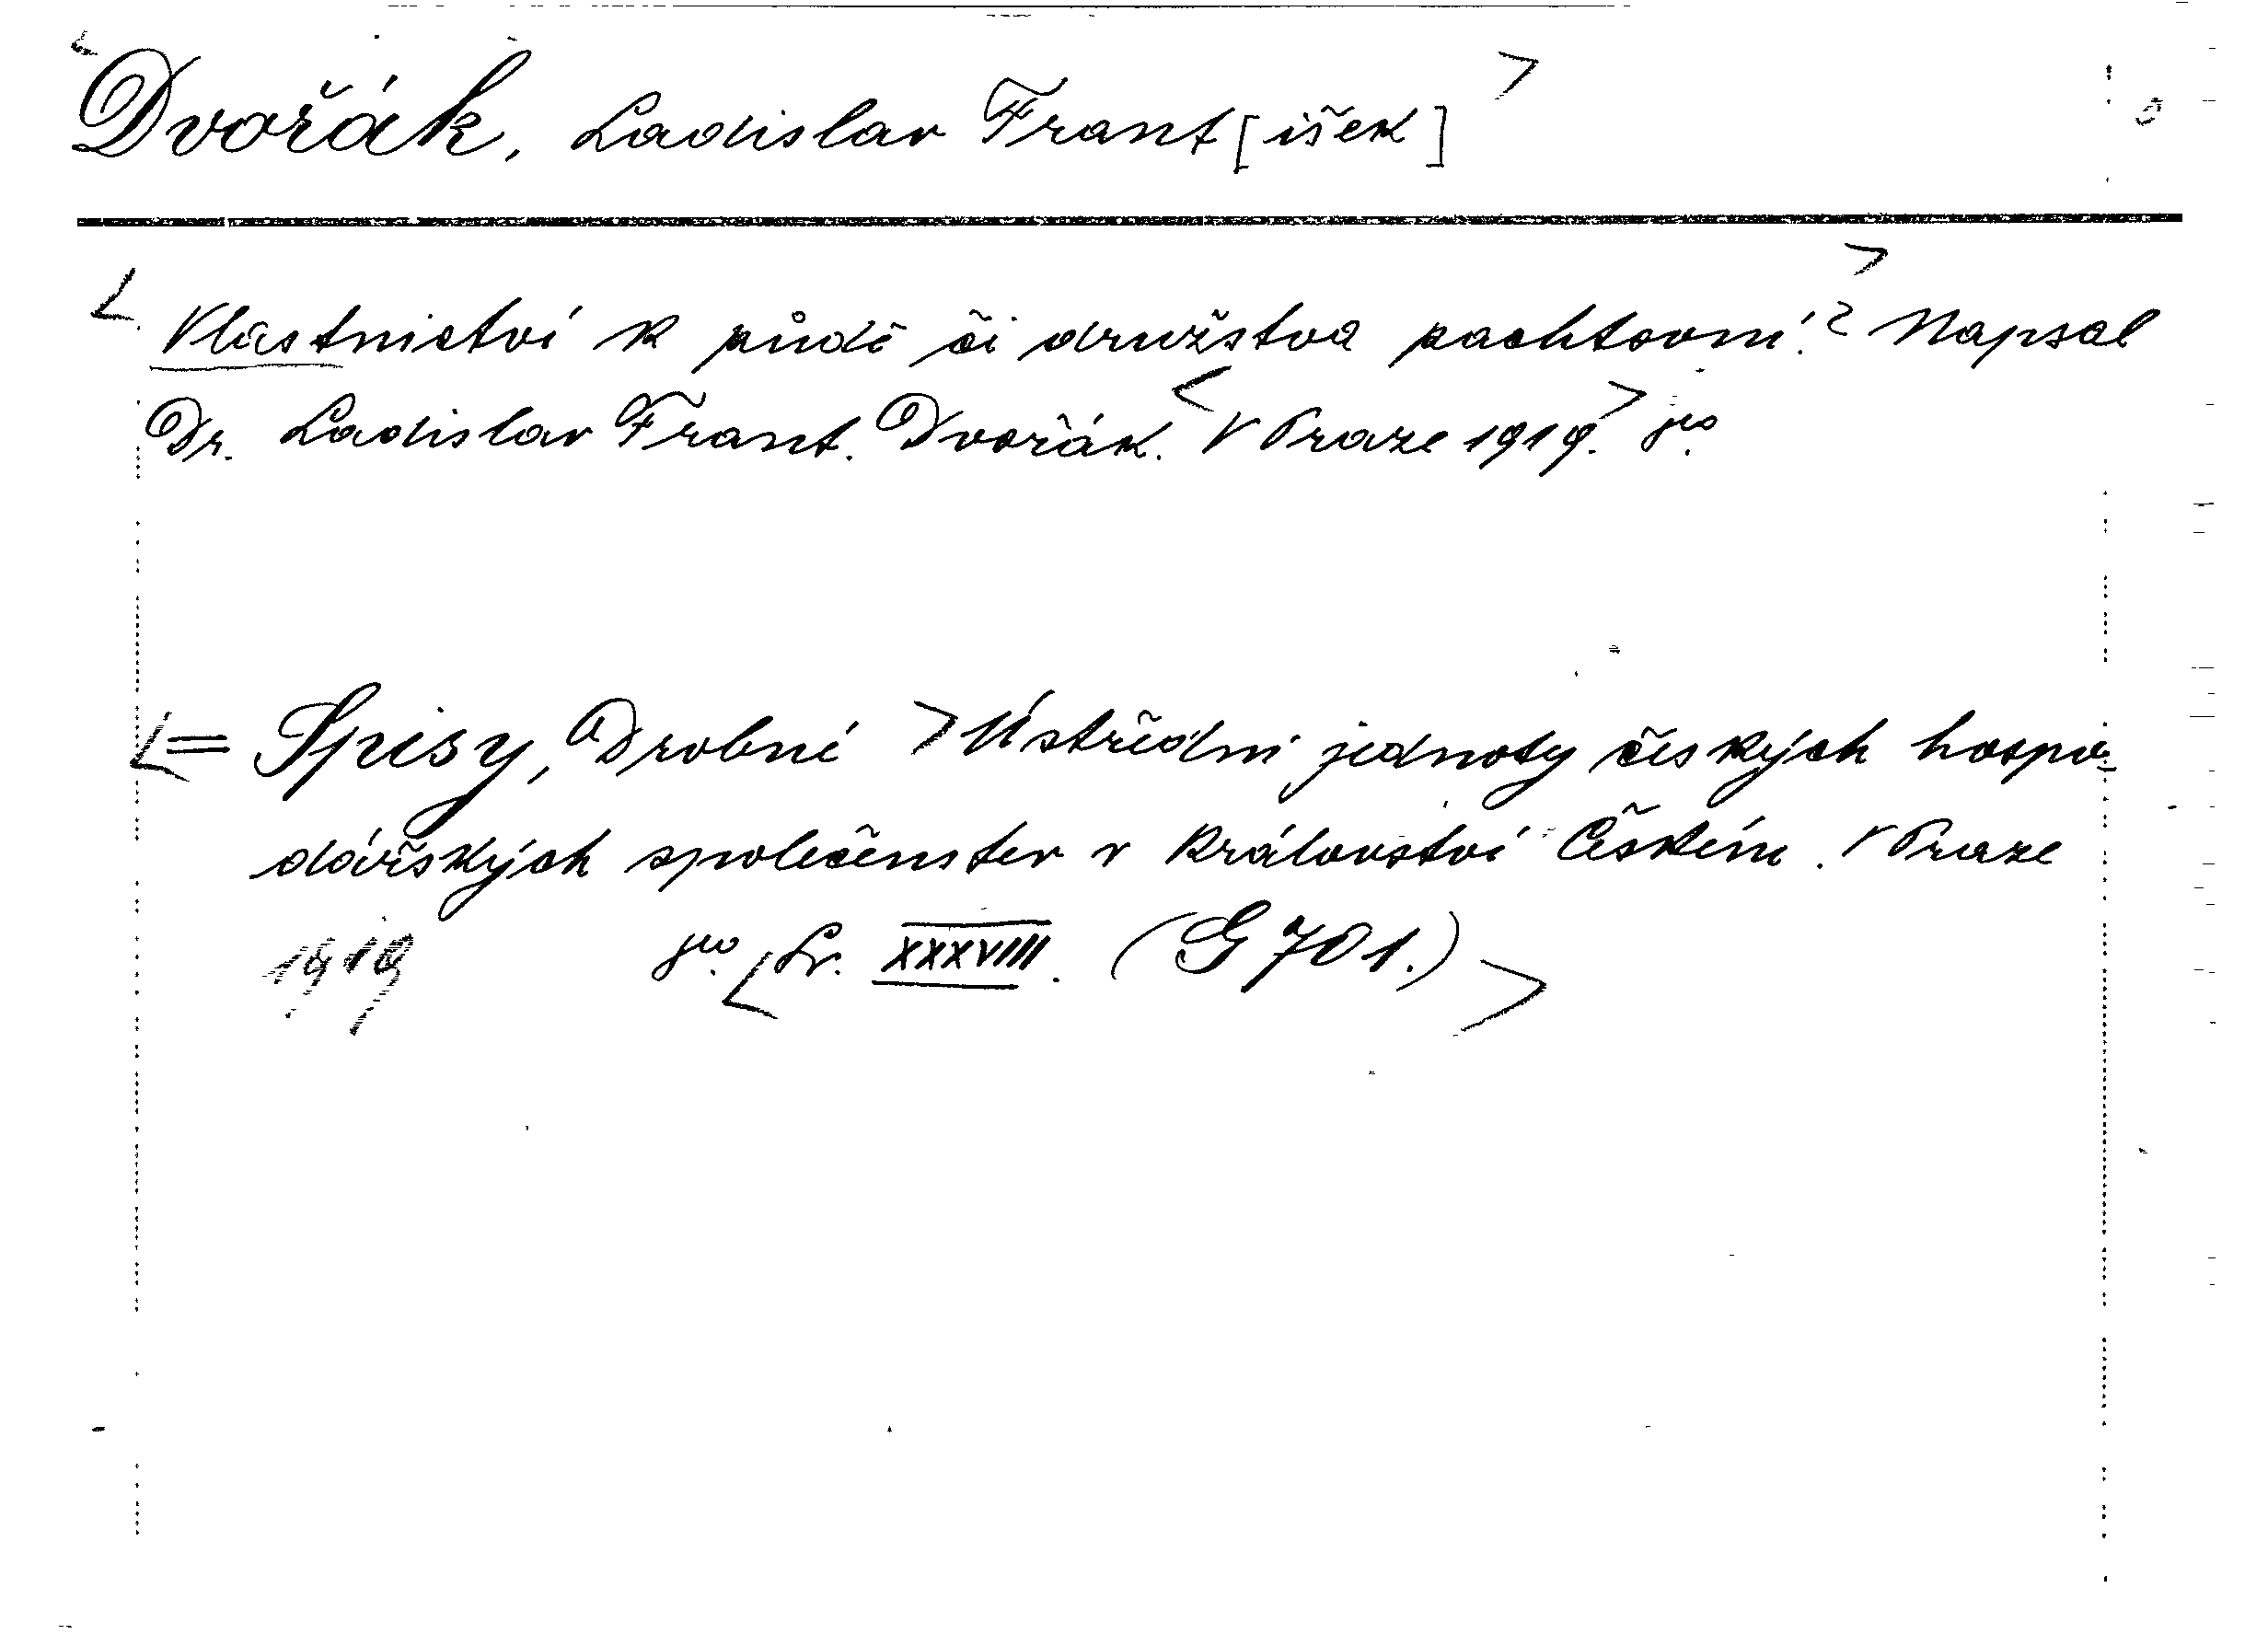 <Dvořák, Ladislav Frant[išek]>
<Vlastnictví k půdě či družstva pachtovní?> Napsal
Dr. Ladislav Frant. Dvořák. <V Praze 1919.> 8º.
<= Spisy, Drobné > Ústřední jednoty českých hospo-
dářských společenstev v Království Českém. V Praze
1919 8º. <Sv. XXXVIII. (G 701.)>